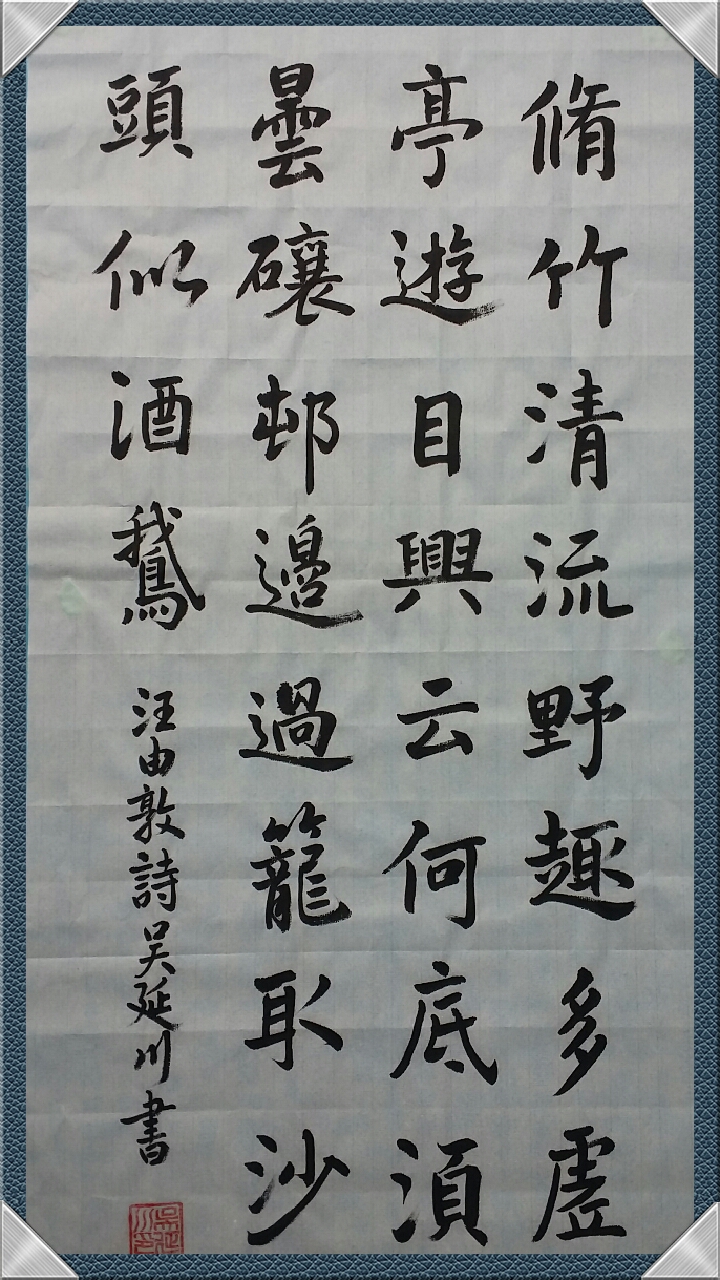 脩竹清流野趣多虚
亭遊目興云何底湏
曇邨邊過籠取沙
頭似酒鵝
汪由敦詩吴延川書